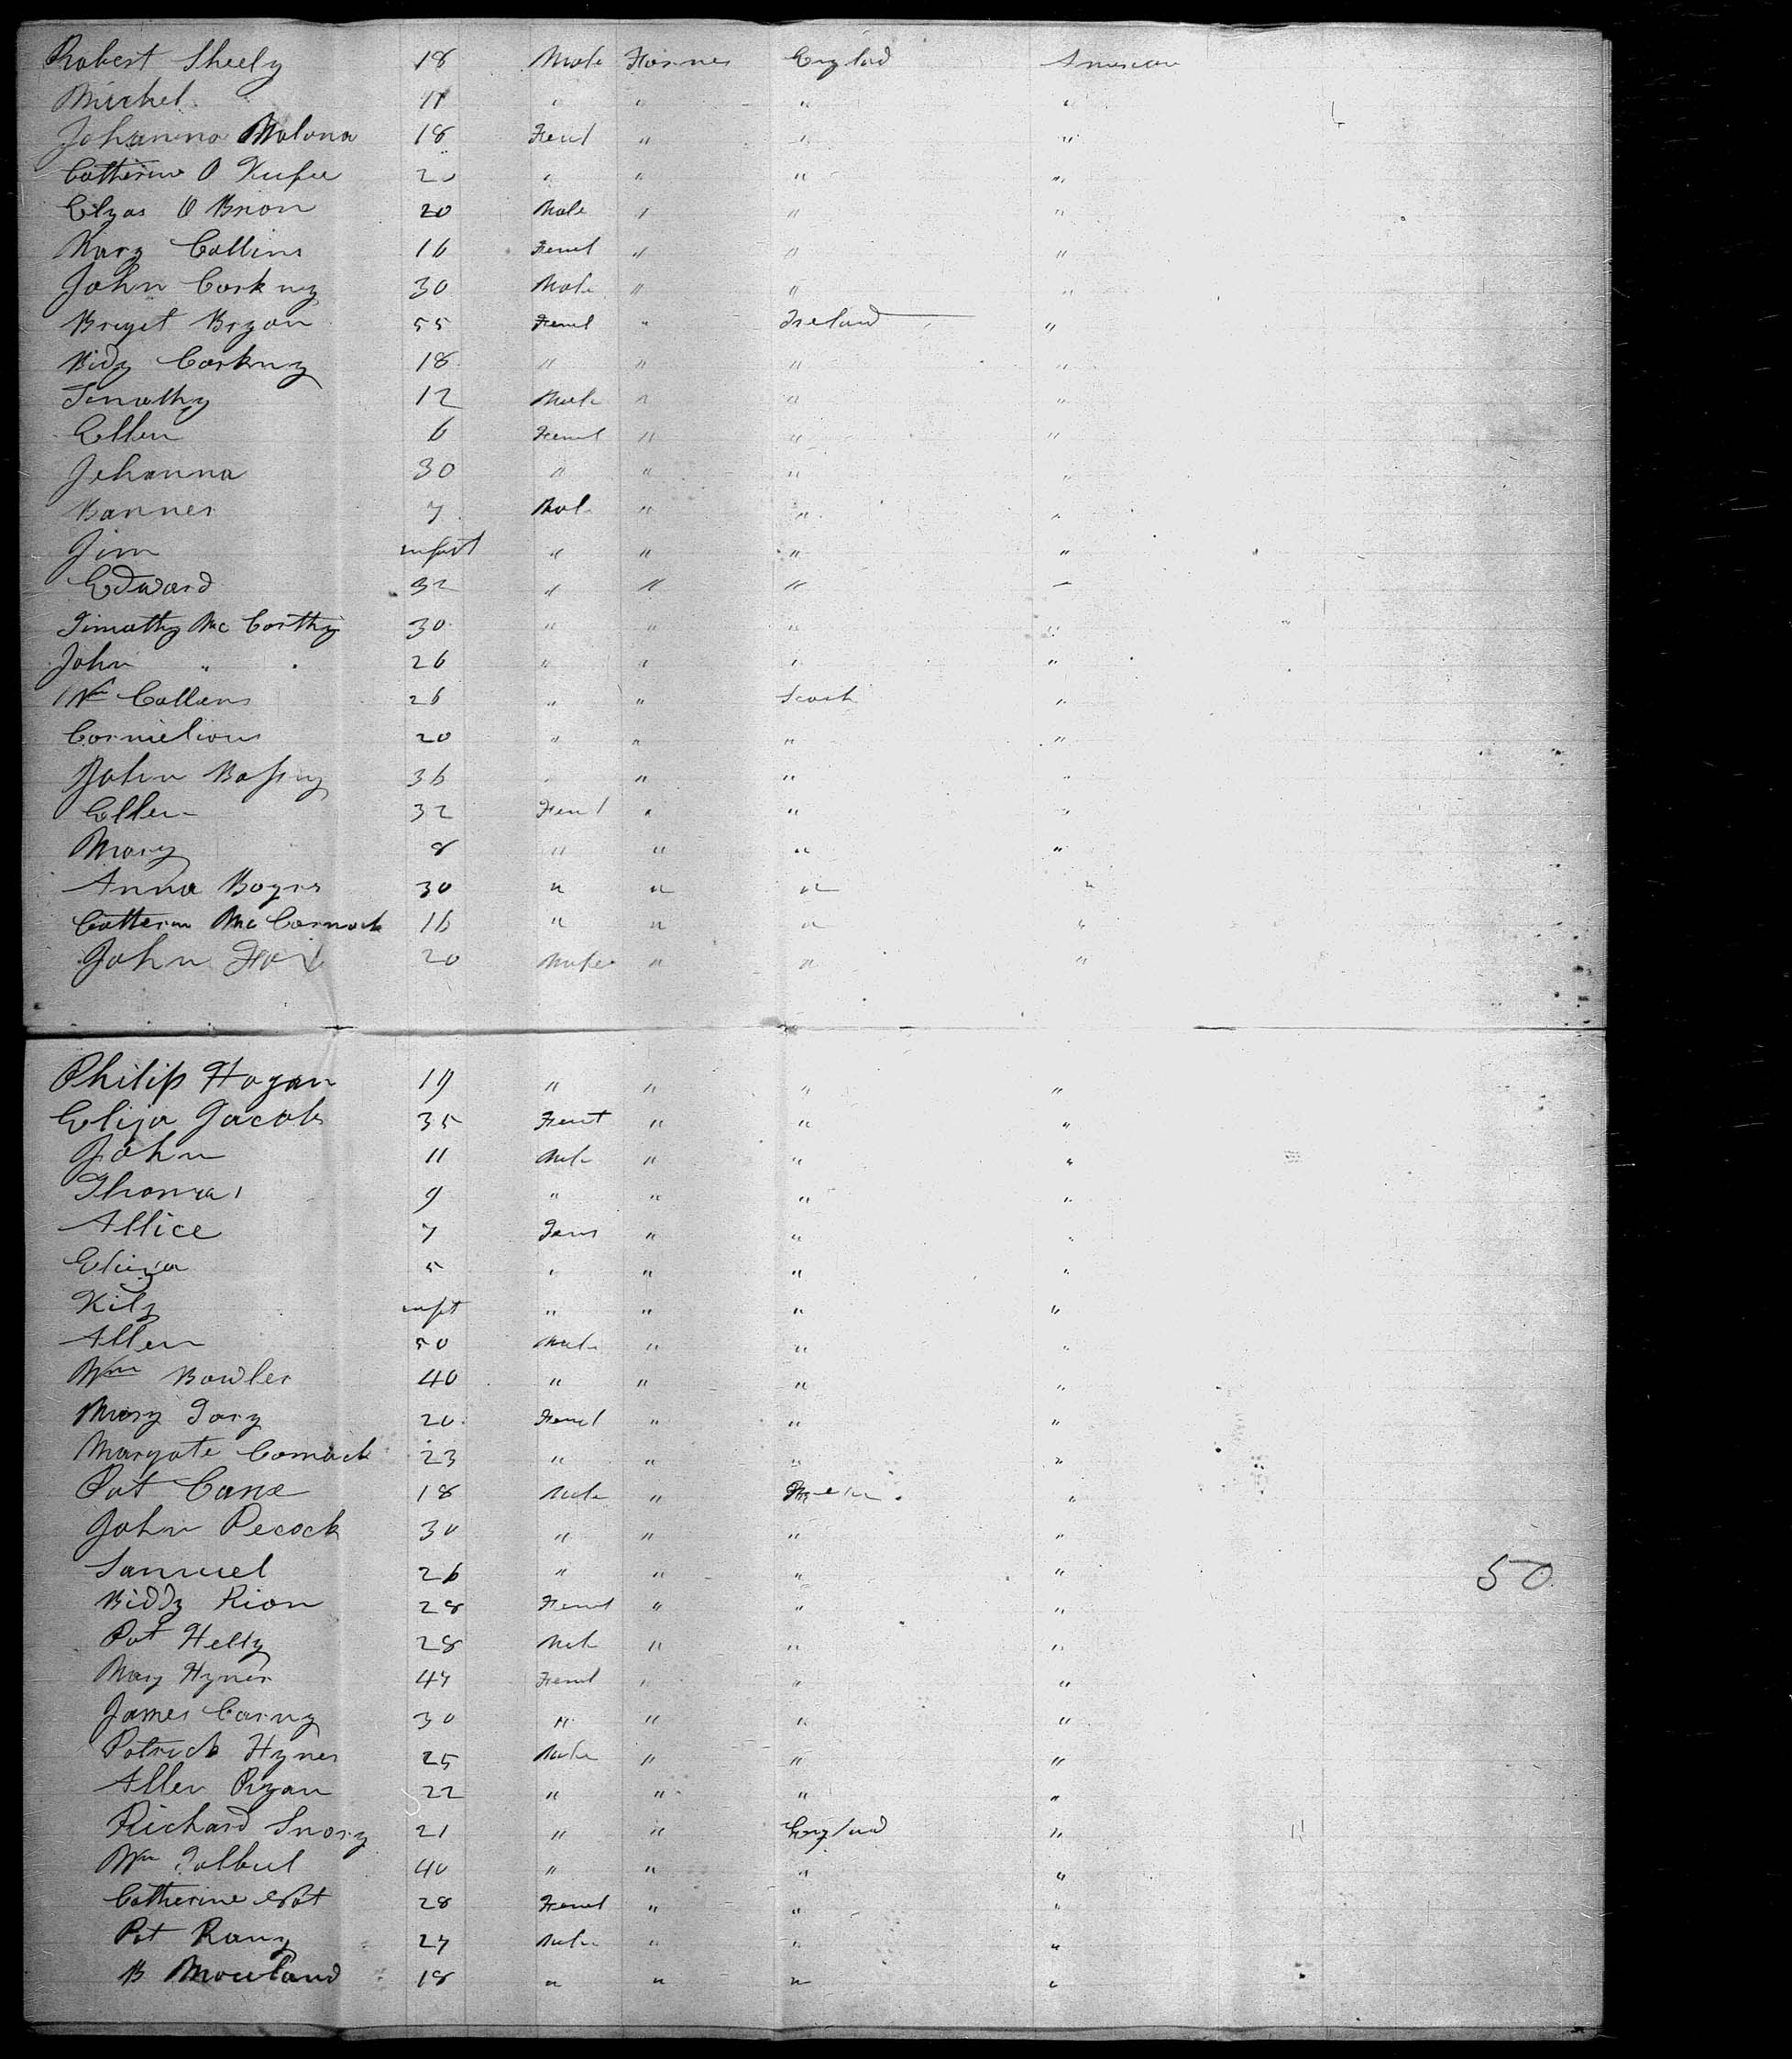 Robert Sheely 18 Male Farmer England American
Michel 11 " " " "
Johanna Malona 18 Feml " " "
Catherine O Keefee 20 " " " "
Elyas O Brion 20 Male " " "
Mary Collins 16 Feml " " "
John Corkny 30 Male " " "
Breget Bryan 55 Feml " Ireland "
Bidy Corkny 18 " " " "
Timothy 12 Male " " "
Ellen 6 Feml " " "
Jehanna 30 " " " "
Bannes 7 Male " " "
Jim infant " " " "
Edward 32 " " " "
Timothy Mc Corthy 30 " " " "
John " 26 " " " "
Wm Collans 26 " " Scoth "
Cornielious 20 " " " "
John 36 " " " "
Ellen 32 Feml " " "
Mary 8 " " " "
Anna Boyrs 30 " " " "
Catteren Mc Cormack 16 " " " "
John Fox 20 Male " " "
Philip Hogan 19 " " " "
Eliza Jacobs 35 Feml " " "
John 11 Male " " "
Thomas 9 " " " "
Allice 7 Fem " " "
Eliza 5 " " " "
Kily inft " " " "
Allen 50 Male " " "
Wm Bowles 40 " " " "
Mary Tory 20 Feml " " "
Margate Comack 23 " " " "
Pat Cane 18 Male " "
John Pecock 30 " " " "
Samuel 26 " " " " 50
Biddy Rion 28 Feml " " "
Pat Helly 28 Male " " "
Mary Hynes 47 Feml " " "
James Carny 30 " " " "
Patrick Hynes 25 Male " " "
Allen Ryan 22 " " " "
Richard Snory 21 " " England "
Wm Talbut 40 " " " "
Catherine 28 Feml " " "
Pat Rany 27 Male " " "
B Mouland 18 " " " "